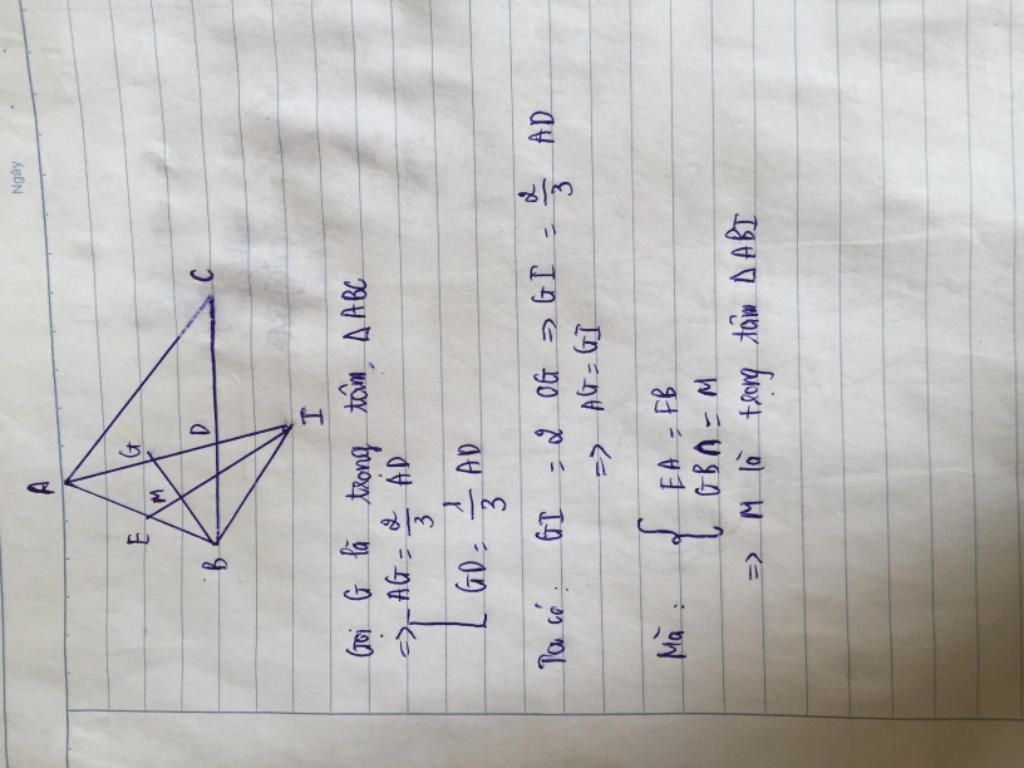 Ngày
A
E
M
G
B
D
C
I
Gọi G là trọng tâm Δ ABC
=> AG = 2/3 AD
GD = 1/3 AD
Ta có: GI = 2 OG => GI = 2/3 AD
=> AG = GI
Mà: { EA = FB
GB A = M
=> M là trọng tâm Δ ABI